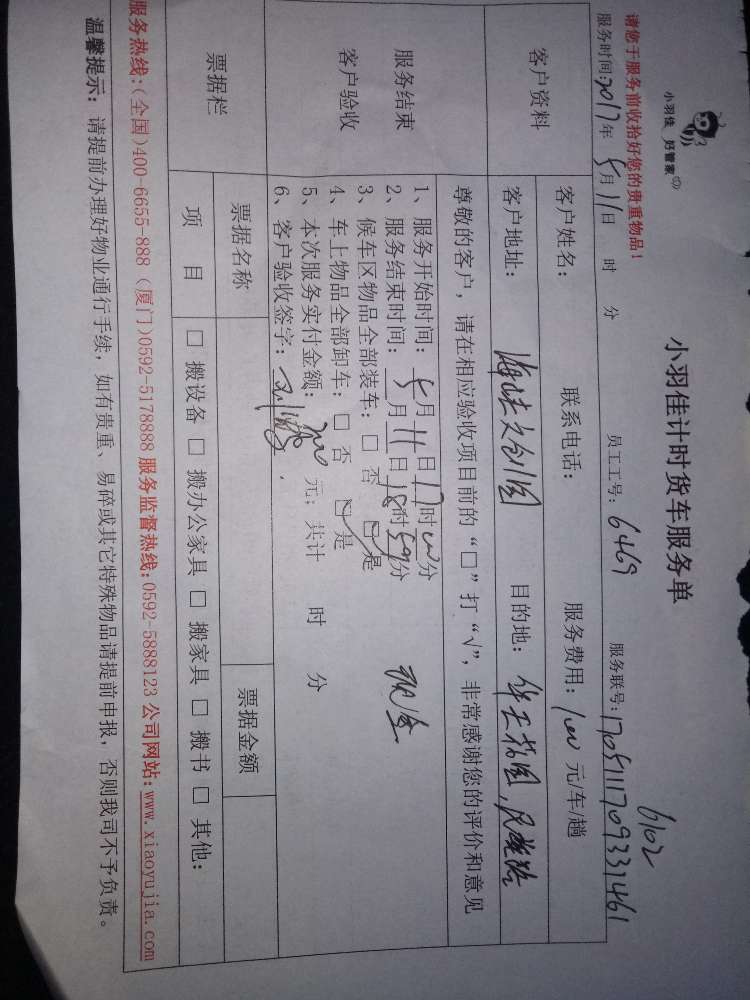 小羽佳 好管家
小羽佳计时货车服务单
请您于服务前收拾好您的贵重物品!
6102
服务时间:2017年5月11日 时 分 员工工号:6469 服务联号:17051117093331461
客户资料
客户姓名: 联系电话: 服务费用:100元/车/趟
客户地址:海峡文创园 目的地:
服务结束
客户验收
尊敬的客户,请在相应验收项目前的“□”打“√”,非常感谢您的评价和意见
1、服务开始时间:5月11日17时00分
2、服务结束时间:5月11日18时59分 现金
3、候车区物品全部装车:□ 否 ☑ 是
4、车上物品全部卸车:□ 否 ☑ 是
5、本次服务实付金额:200元;共计 时 分
6、客户验收签字:
票据栏
票据名称 票据金额
项 目 □ 搬设备 □ 搬办公家具 □ 搬家具 □ 搬书 □ 其他:
服务热线:(全国)400-6655-888 (厦门)0592-5178888 服务监督热线:0592-5888123 公司网站:www.xiaoyujia.com
温馨提示: 请提前办理好物业通行手续, 如有贵重、易碎或其它特殊物品请提前申报, 否则我司不予负责。